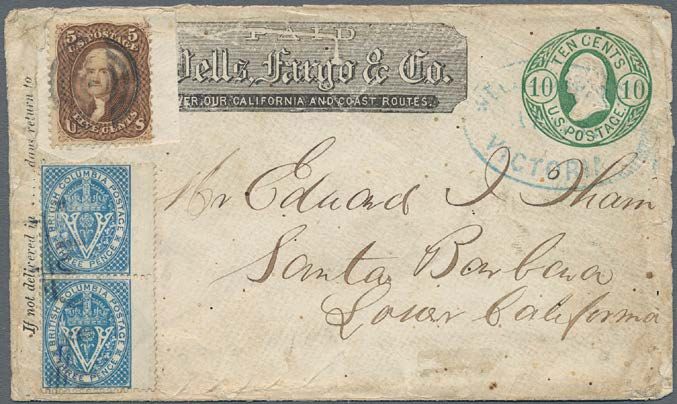 5 5
U.S. POSTAGE
FIVE CENTS
PAID
Wells, Fargo & Co.
OVER OUR CALIFORNIA AND COAST ROUTES.
TEN CENTS
10 10
U.S. POSTAGE
VICTORIA
If not delivered in days return to
BRITISH COLUMBIA POSTAGE
V
THREE PENCE
BRITISH COLUMBIA POSTAGE
V
THREE PENCE
Mr Eduard J
Santa Barbara
Lower California